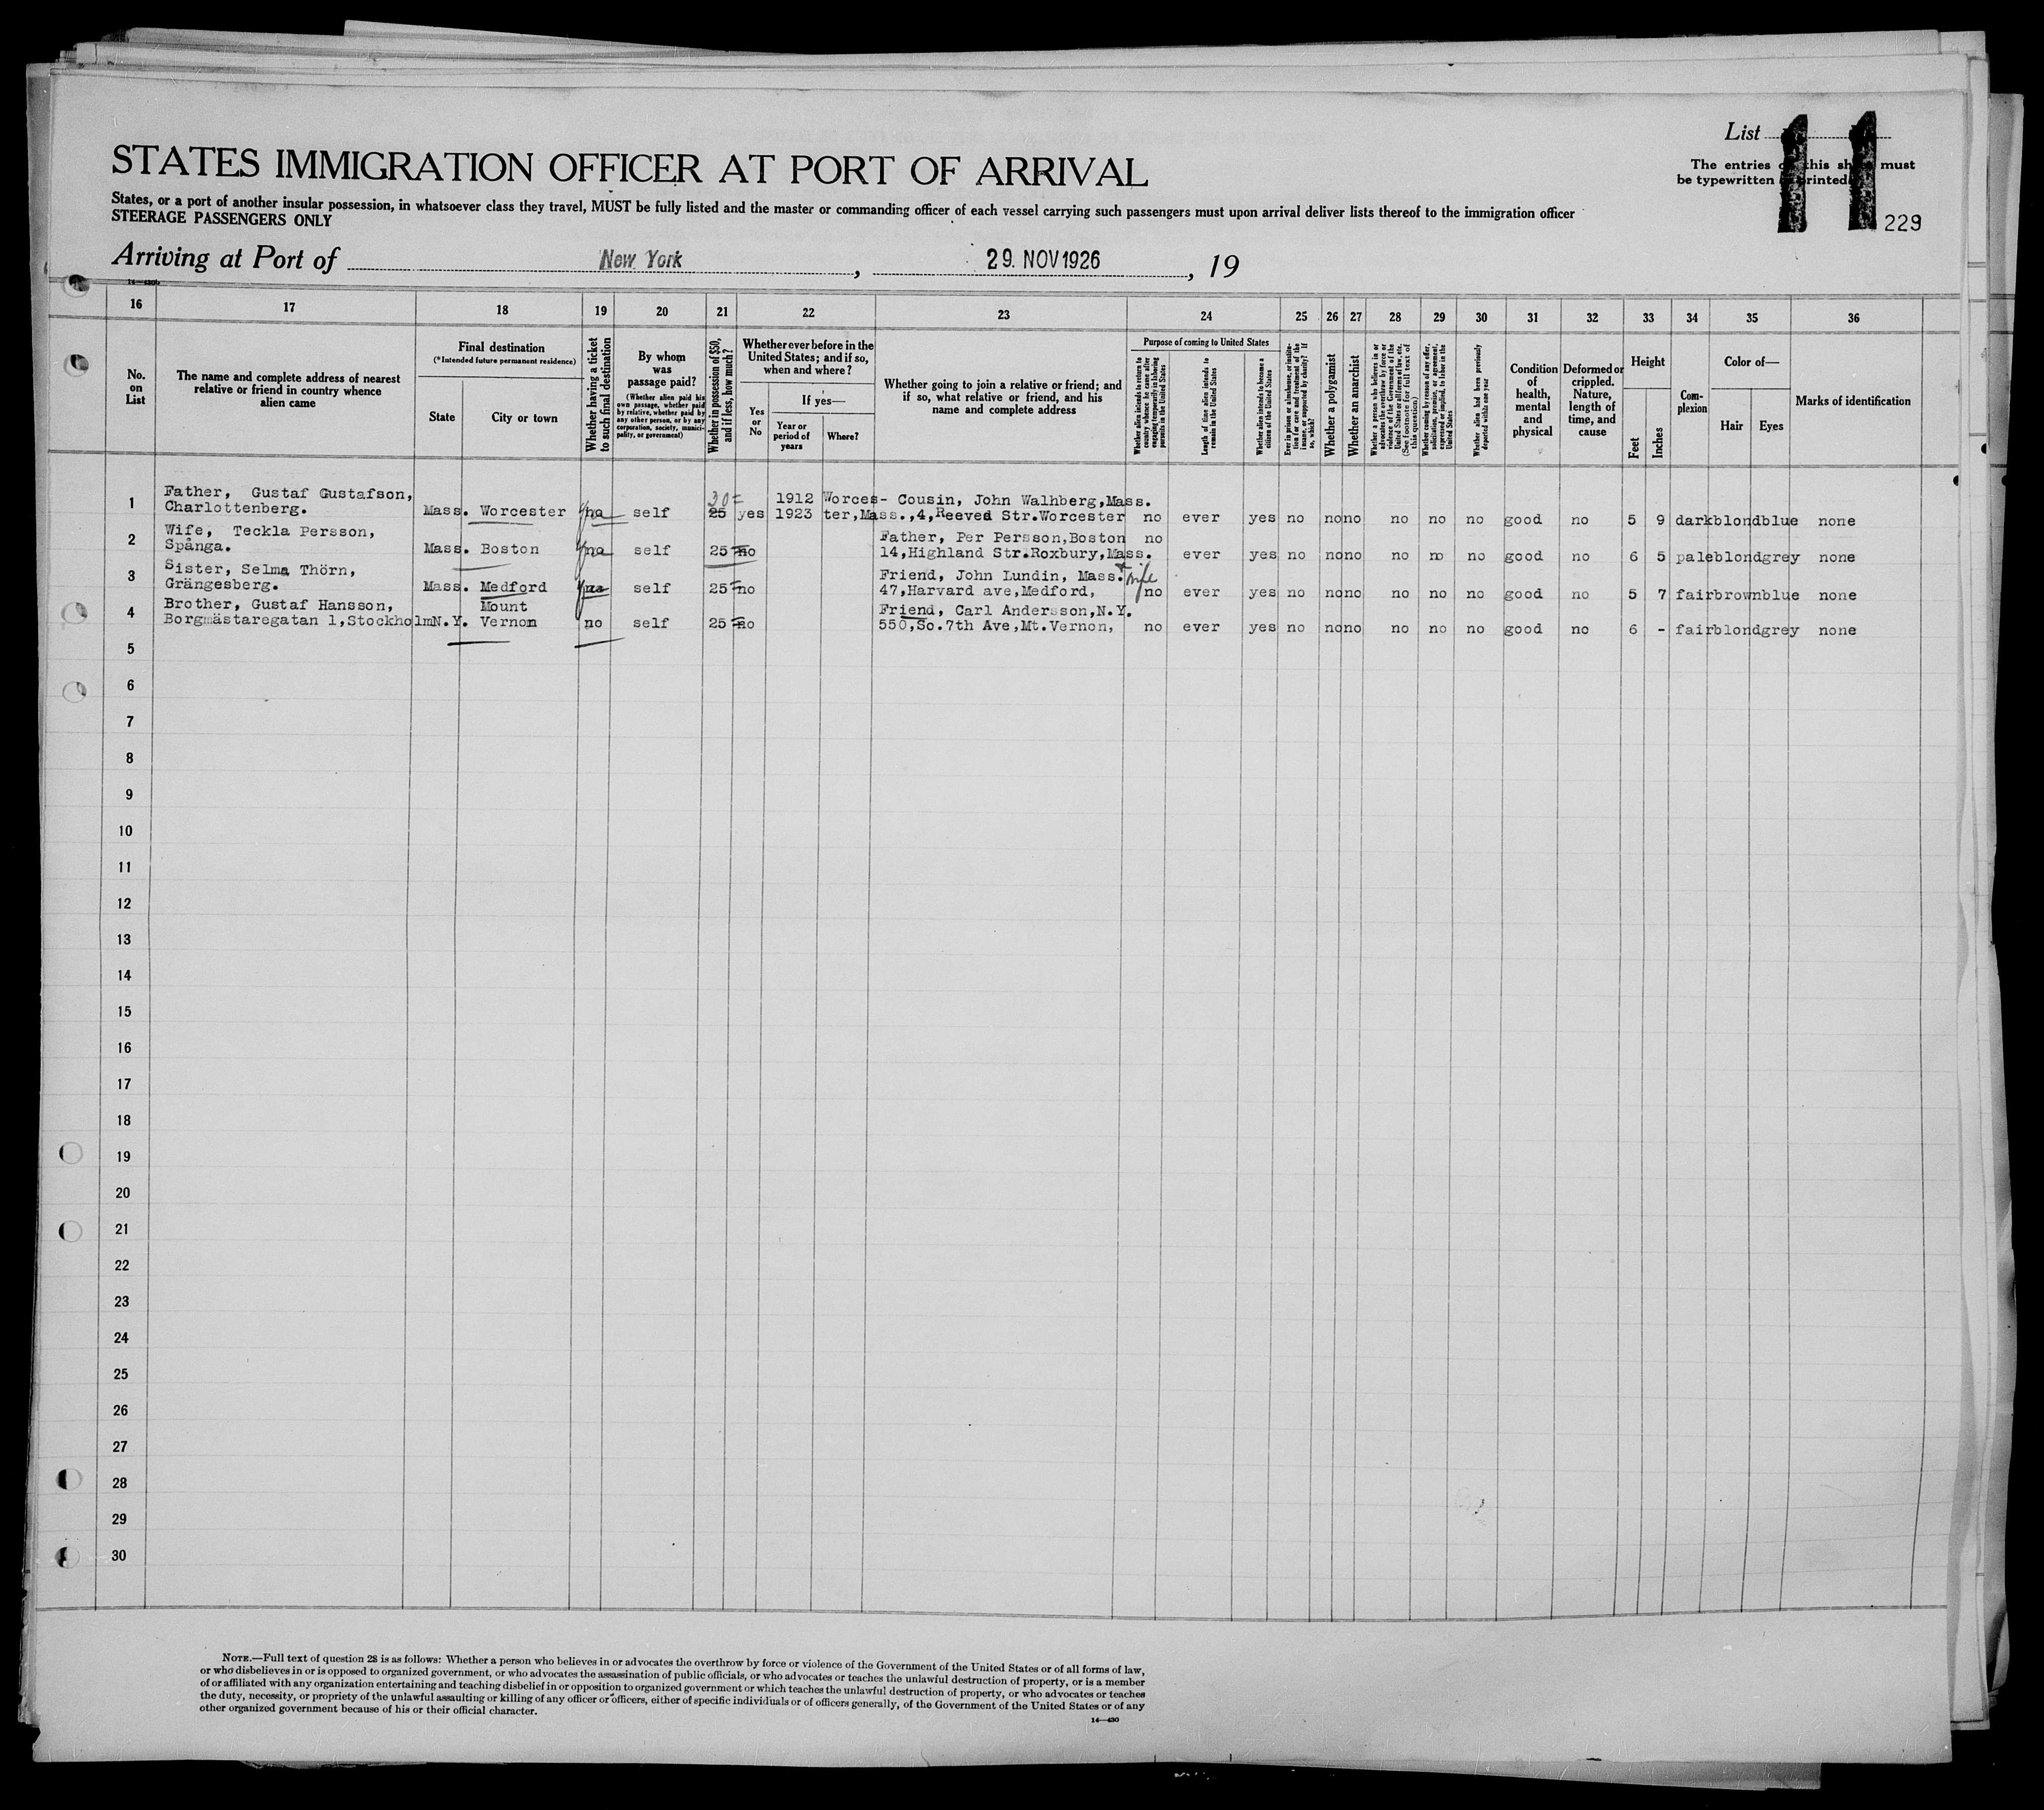 List
The entries on this sheet must
be typewritten or printed
11
229
STATES IMMIGRATION OFFICER AT PORT OF ARRIVAL
States, or a port of another insular possession, in whatsoever class they travel, MUST be fully listed and the master or commanding officer of each vessel carrying such passengers must upon arrival deliver lists thereof to the immigration officer
STEERAGE PASSENGERS ONLY
Arriving at Port of New York, 29. NOV 1926, 19
16 17 18 19 20 21 22 23 24 25 26 27 28 29 30 31 32 33 34 35 36
No. on List
The name and complete address of nearest relative or friend in country whence alien came
Final destination
(*Intended future permanent residence)
State
City or town
Whether having a ticket to such final destination
By whom was passage paid?
(Whether alien paid his own passage, whether paid by relative, whether paid by any other person, or by any corporation, society, municipality, or government)
Whether in possession of $50, and if less, how much?
Whether ever before in the United States; and if so, when and where?
Yes or No
If yes—
Year or period of years
Where?
Whether going to join a relative or friend; and if so, what relative or friend, and his name and complete address
Purpose of coming to United States
Whether alien intends to return to country whence he came after engaging temporarily in laboring pursuits in the United States
Length of time alien intends to remain in the United States
Whether alien intends to become a citizen of the United States
Ever in prison or almshouse, or institution for care and treatment of the insane, or supported by charity? If so, which?
Whether a polygamist
Whether an anarchist
Whether a person who believes in or advocates the overthrow by force or violence of the Government of the United States or all forms of law, etc. (See footnote for full text of this question)
Whether coming by reason of any offer, solicitation, promise, or agreement, expressed or implied, to labor in the United States
Whether alien had been previously deported within one year
Condition of health, mental and physical
Deformed or crippled. Nature, length of time, and cause
Height
Feet
Inches
Complexion
Color of—
Hair
Eyes
Marks of identification
1 Father, Gustaf Gustafson, 30= 1912 Worces- Cousin, John Walhberg, Mass.
Charlottenberg. Mass. Worcester no self 25 yes 1923 ter, Mass.,4, Reeved Str. Worcester no ever yes no no no no no no good no 5 9 dark blond blue none
2 Wife, Teckla Persson, Father, Per Persson, Boston no
Spånga. Mass. Boston no self 25= no 14, Highland Str. Roxbury, Mass. ever yes no no no no no no good no 6 5 pale blond grey none
3 Sister, Selma Thörn, Friend, John Lundin, Mass. + wife
Grängesberg. Mass. Medford self 25= no 47, Harvard ave, Medford, no ever yes no no no no no no good no 5 7 fair brown blue none
4 Brother, Gustaf Hansson, Mount Friend, Carl Andersson, N.Y.
Borgmästaregatan 1, Stockholm N.Y. Vernon no self 25= no 550, So. 7th Ave, Mt. Vernon, no ever yes no no no no no no good no 6 - fair blond grey none
5
6
7
8
9
10
11
12
13
14
15
16
17
18
19
20
21
22
23
24
25
26
27
28
29
30
NOTE.—Full text of question 28 is as follows: Whether a person who believes in or advocates the overthrow by force or violence of the Government of the United States or of all forms of law,
or who disbelieves in or is opposed to organized government, or who advocates the assassination of public officials, or who advocates or teaches the unlawful destruction of property, or is a member
of or affiliated with any organization entertaining and teaching disbelief in or opposition to organized government or which teaches the unlawful destruction of property, or who advocates or teaches
the duty, necessity, or propriety of the unlawful assaulting or killing of any officer or officers, either of specific individuals or of officers generally, of the Government of the United States or of any
other organized government because of his or their official character.
14—430